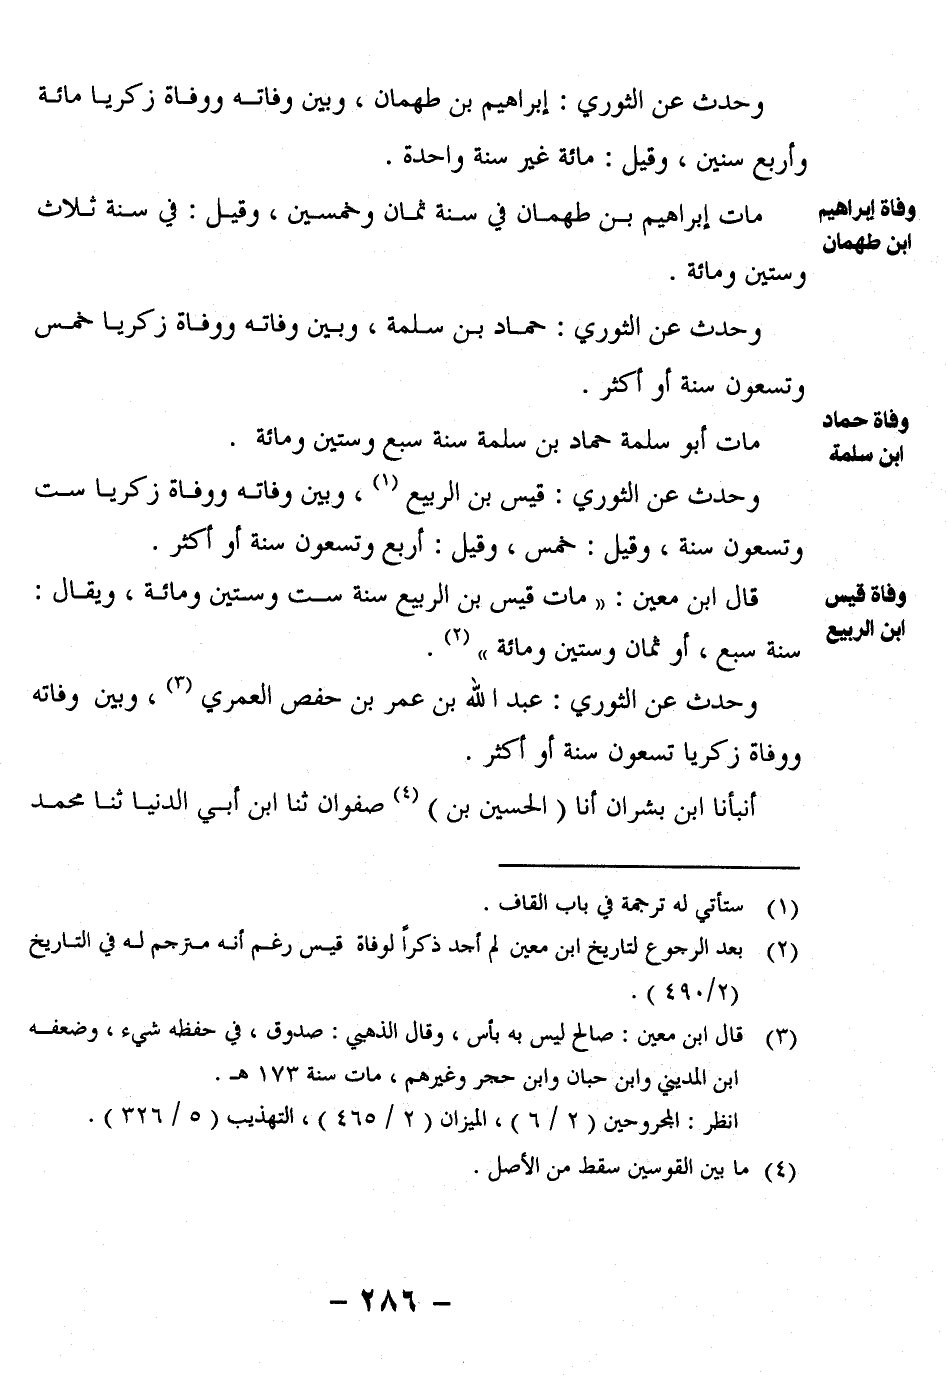 وحدث عن الثوري : إبراهيم بن طهمان ، وبين وفاتـه ووفـاة زكريـا مائـة
وأربع سنين ، وقيل : مائة غير سنة واحدة .
وفاة إبراهيم
ابن طهمان
مات إبراهيم بـن طهمـان في سـنة ثمـان وخمسـين ، وقيـل : في سـنة ثـلاث
وستين ومائة .
وحدث عن الثوري : حمـاد بـن سـلمة ، وبـين وفاتـه ووفـاة زكريـا خمـس
وتسعون سنة أو أكثر .
وفاة حماد
ابن سلمة
مات أبو سلمة حماد بن سلمة سنة سبع وستين ومائة .
وحدث عن الثوري : قيس بن الربيع (١) ، وبين وفاتـه ووفـاة زكريـا سـت
وتسعون سنة ، وقيل : خمس ، وقيل : أربع وتسعون سنة أو أكثر .
وفاة قيس
ابن الربيع
قال ابن معين : « مات قيس بن الربيع سنة سـت وسـتين ومائـة ، ويقـال :
سنة سبع ، أو ثمان وستين ومائة » (٢) .
وحدث عن الثوري : عبد الله بن عمر بن حفص العمري (٣) ، وبين وفاته
ووفاة زكريا تسعون سنة أو أكثر .
أنبأنا ابن بشران أنا ( الحسين بن ) (٤) صفوان ثنا ابن أبـي الدنيـا ثنـا محمـد
(١) ستأتي له ترجمة في باب القاف .
(٢) بعد الرجوع لتاريخ ابن معين لم أجد ذكراً لوفاة قيـس رغـم أنـه مـترجم لـه في التـاريخ
(٤٩٠/٢ ) .
(٣) قال ابن معين : صالح ليس به بأس ، وقال الذهبي : صدوق ، في حفظه شيء ، وضعفـه
ابن المديني وابن حبان وابن حجر وغيرهم ، مات سنة ١٧٣ هـ .
انظر : المجروحين ( ٢ / ٦ ) ، الميزان ( ٢ / ٤٦٥ ) ، التهذيب ( ٥ / ٣٢٦ ) .
(٤) ما بين القوسين سقط من الأصل .
- ٢٨٦ -